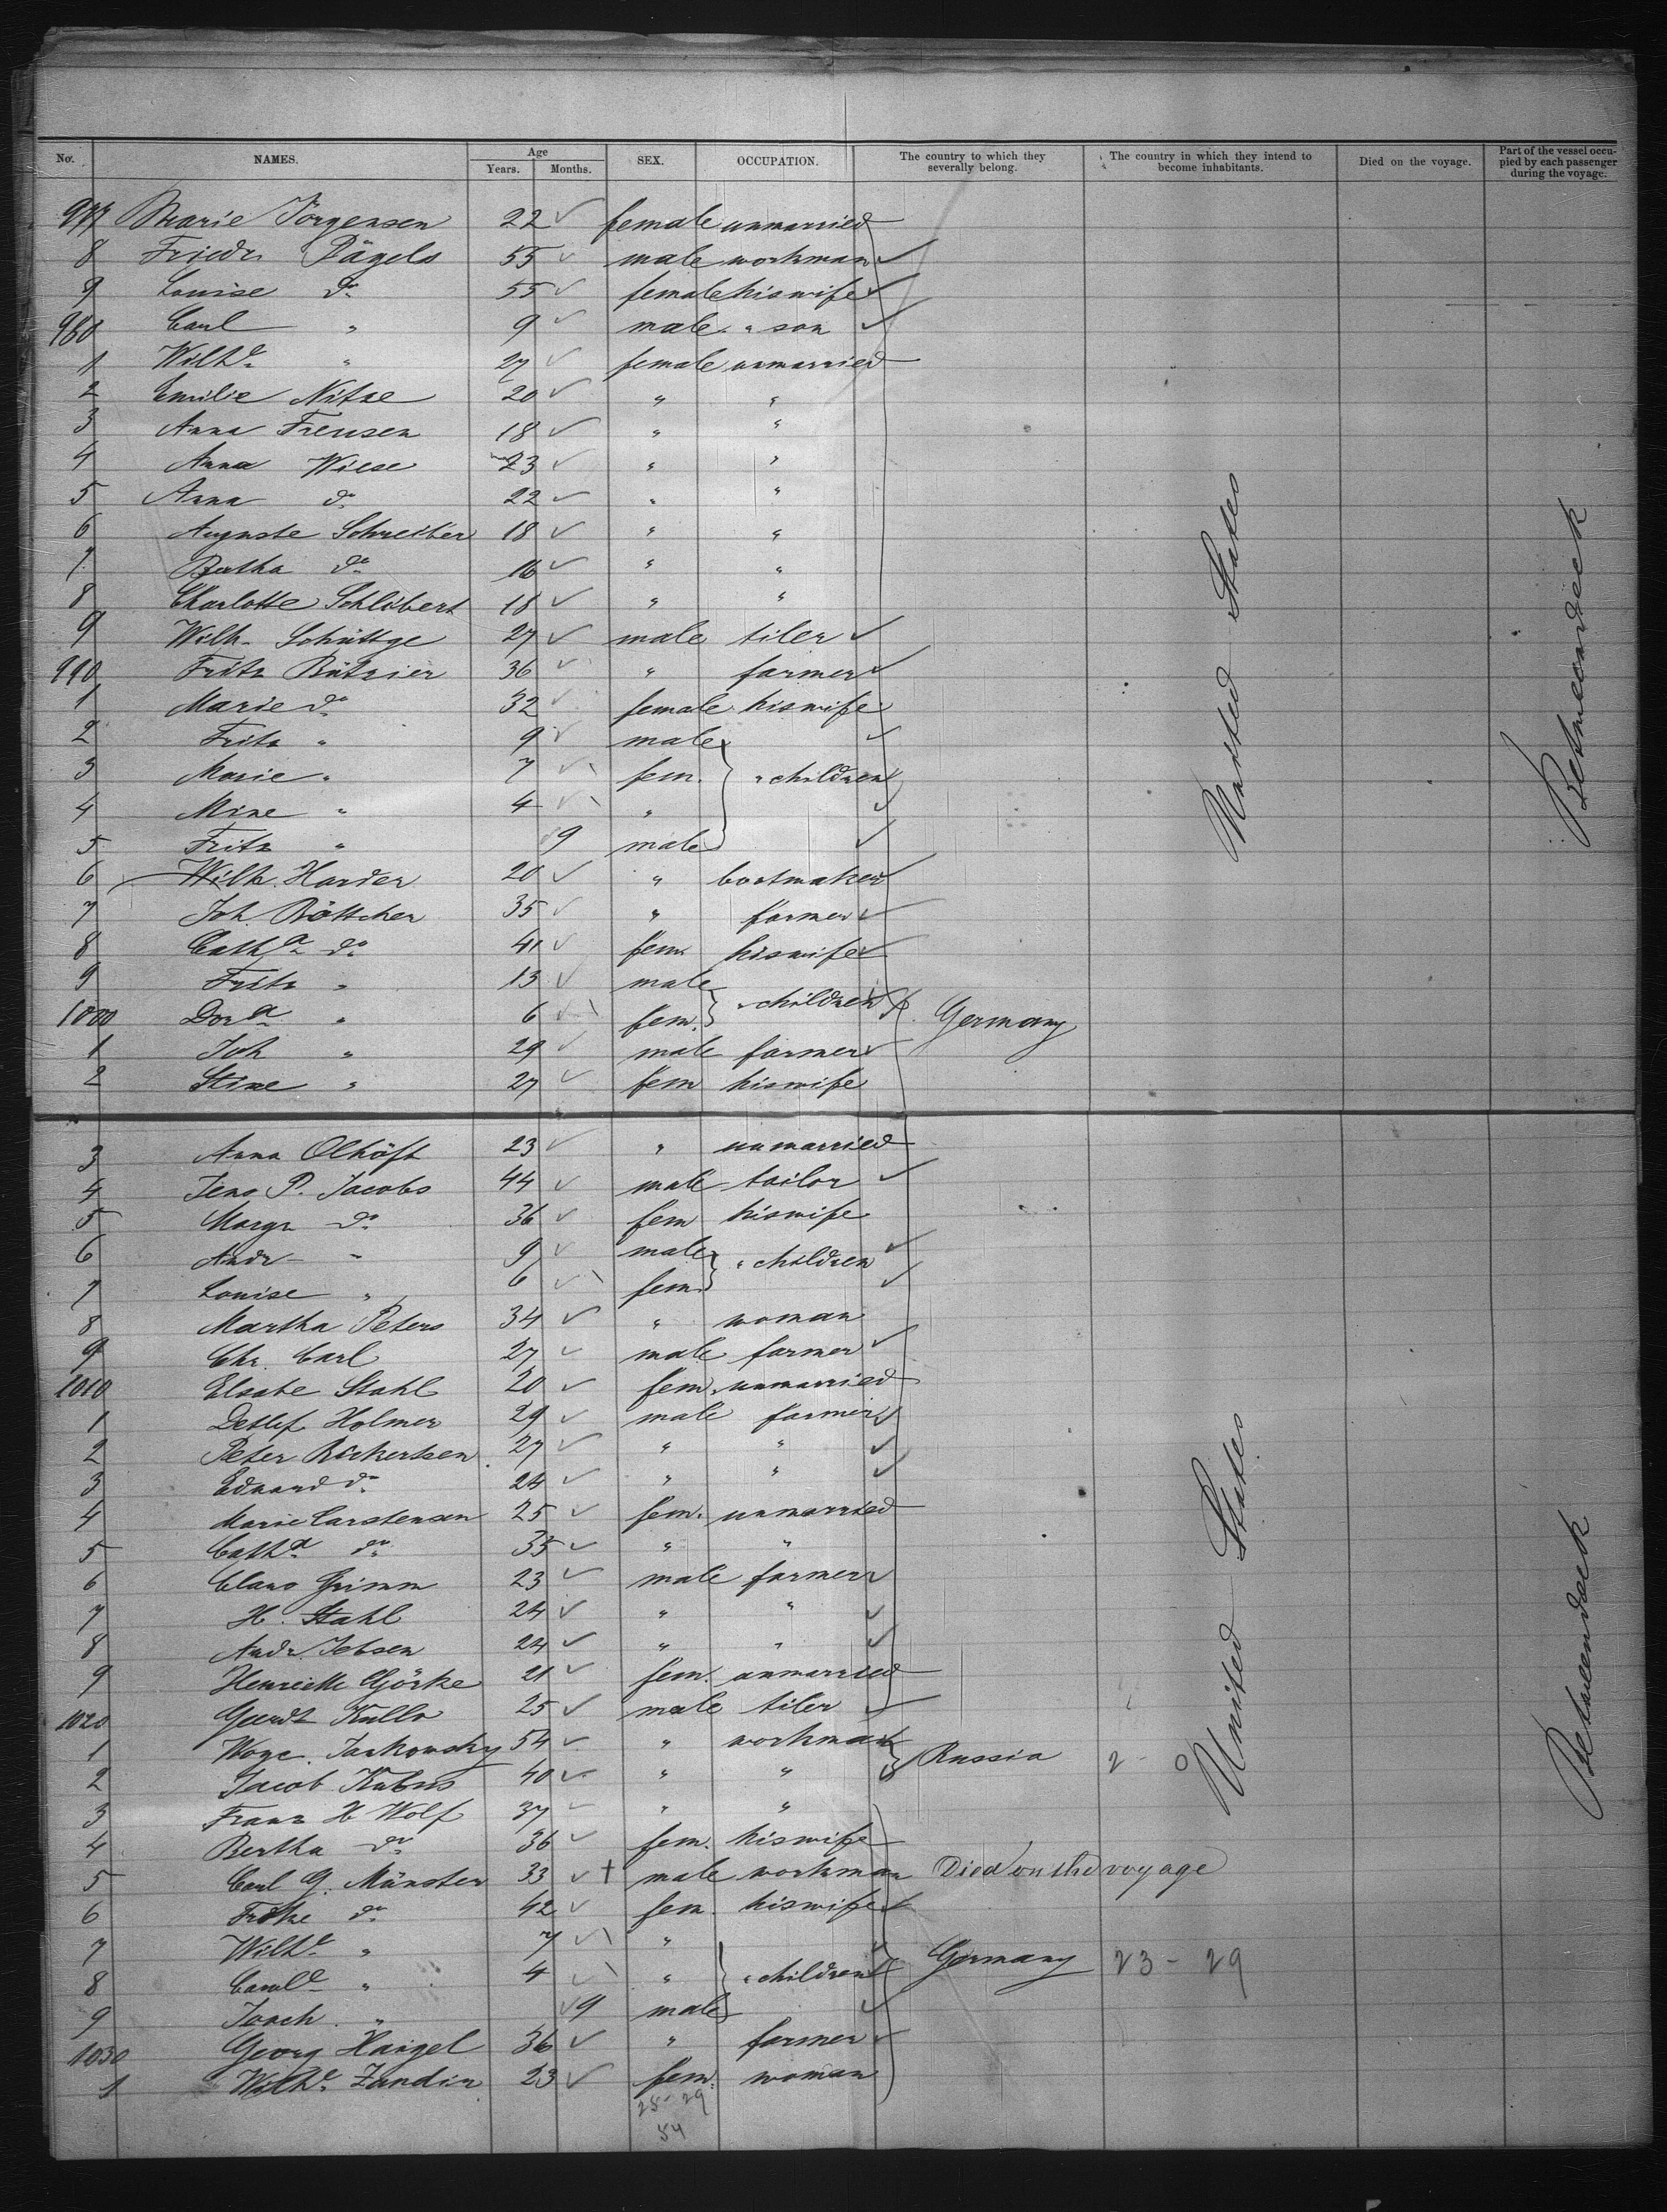 No. NAMES. Age Years. Months. SEX. OCCUPATION. The country to which they severally belong. The country in which they intend to become inhabitants. Died on the voyage. Part of the vessel occupied by each passenger during the voyage.
977 Marie Jörgensen 22 female unmarried
8 Friedr. Pägels 55 male workman
9 Louise do 55 female his wife
980 Carl " 9 male " son
1 Wilhe " 27 female unmarried
2 Emilie Nitze 20 " "
3 Anna Freusen 18 " "
4 Anna Wiese 23 " "
5 Anna do 22 " "
6 Auguste Schreiber 18 " "
7 Bertha do 16 " "
8 Charlotte Schlöbert 18 " "
9 Wilh. Schüttge 27 male tiler
990 Fritz Bützier 36 " farmer
1 Marie do 32 female his wife
2 Fritz " 9 male
3 Marie " 7 fem. " children
4 Mine " 4 "
5 Fritz " 9 male
6 Wilh. Harder 20 " bootmaker
7 Joh. Böttcher 35 " farmer
8 Catha do 41 fem his wife
9 Fritz " 13 male
1000 Dora " 6 fem. " children Germany
1 Joh " 29 male farmer
2 Stine " 27 fem his wife
3 Anna Olhöft 23 " unmarried
4 Jens P. Jacobs 44 male tailor
5 Margr do 36 fem his wife
6 Andr " 9 male " children
7 Louise " 6 fem
8 Martha Peters 34 " woman
9 Chr. Carl 27 male farmer
1010 Elsabe Stahl 20 fem. unmarried
1 Detlef Holmer 29 male farmer
2 Peter Rickertsen 27 " "
3 Eduard do 24 " "
4 Marie Carstensen 25 fem. unmarried
5 Catha do 35 " "
6 Claus Grimm 23 male farmer
7 H. Stahl 24 " "
8 Andr. Jebsen 24 " "
9 Henriette Görke 21 fem. unmarried
1020 Geerdt Kulla 25 male tiler
1 Woyc. Jankowsky 54 " workman Russia 2 - 0
2 Jacob Kubus 40 " "
3 Franz H Wolf 37 " "
4 Bertha do 36 fem. his wife
5 Carl G. Münster 33 + male workman Died on the voyage
6 do 42 fem his wife
7 Wilhe " 7 "
8 Carole " 4 " " children Germany 23 - 29
9 Joach. " 9 male
1030 Georg Haigel 36 " farmer
1 Wilhe Zandin 23 fem. woman
25 - 29
54
United States
Betweendeck
United States
Betweendeck